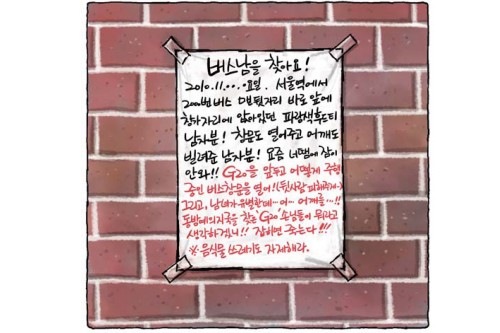 버스남을 찾아요!
2010.11.○○.○요일. 서울역에서
2000번 버스 맨 뒷자리 바로 앞에
창가자리에 앉아있던 파랑색후드티
남자분! 창문도 열어주고 어깨도
빌려준 남자분! 요즘 너땜에 잠이
안와!! G20을 앞두고 어떻게 주행
중인 버스창문을 열어!(뒷사람 피해주게~)
그리고, 남녀가 유별한데…어…어깨를…!!
동방예의지국을 찾는 G20 손님들이 뭐라고
생각하겠니!! 잡히면 죽는다!!!
※음식물 쓰레기도 자제해라.